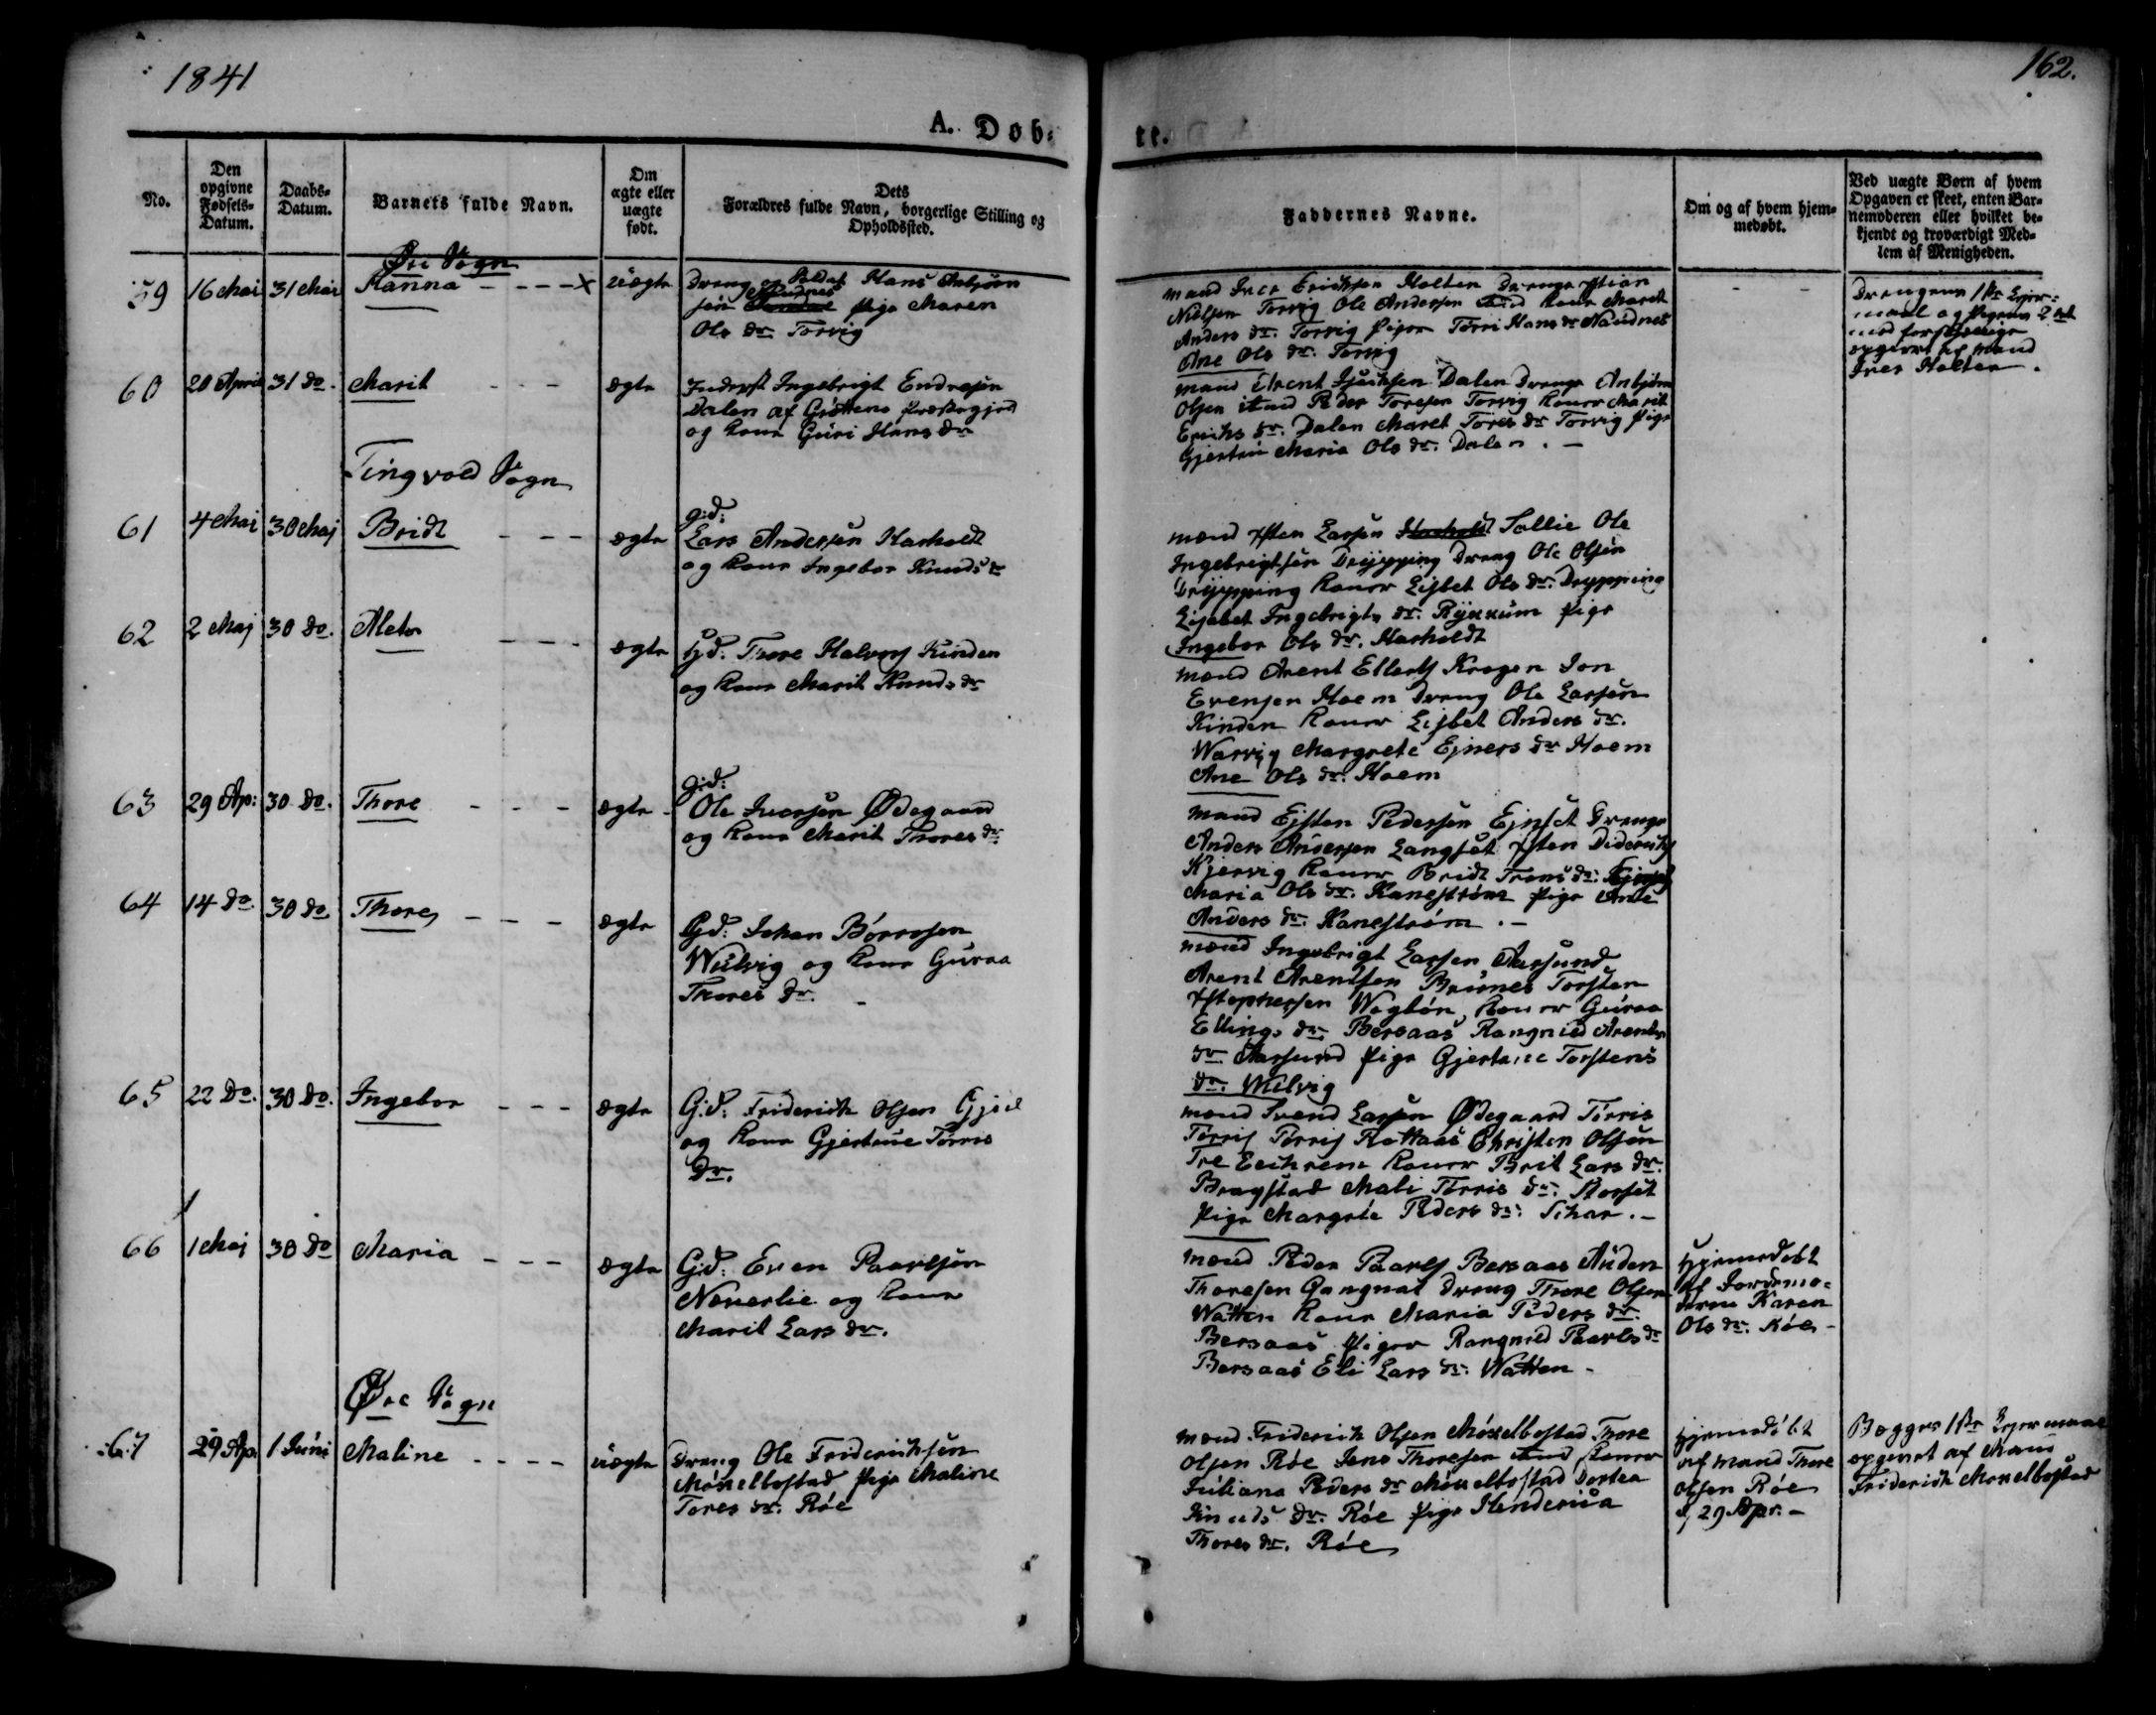 1841
162.
A. Døb-
te.
No.
Den opgivne Fødsels-Datum.
Daabs-Datum.
Barnets fulde Navn.
Om ægte eller uægte født.
Dets Forældres fulde Navn, borgerlige Stilling og Opholdssted.
Faddernes Navne.
Om og af hvem hjemmedøbt.
Ved uægte Børn af hvem Opgaven er skeet, enten Barnemoderen eller hvilket bekjendt og troværdigt Medlem af Menigheden.
Øre Sogn
59 16 Mai 31 Mai Hanna - - - - x uægte
Dreng og Soldat Hans
sen Pige Maren
Ols dr. Torvig
Mand Iver Erichsen Holten Drenge Stian
Nielsen Torvig Ole Andersen Koner Marit
Anders dr. Torvig Piger Hans dr Naudnes
Ane Ols dr. Torvig
Drengens 1ste Leiermaal og Pigens 2det
opgivet af Mand
Iver Holten.
60 20 April 31 do. Marit - - - ægte
Inderst Ingebrigt Endresen
Dalen af Grøttens Præstegjed
og Kone Guri Hans dr
Mand Arent Dalen Drenge Anbjørn
Olsen Peder Toresen Torvig Koner Marit
Erichs dr. Dalen Maret Tores dr Torvig Pige
Maria Ols dr. Dalen. -
Tingvold Sogn
61 4 Mai 30 Maj Bridt - - - ægte
g:d:
Lars Andersen Harholdt
og Kone Ingebor Knuds dr
Mænd Larsen Sollie Ole
Ingebrigtsen Drypping Dreng Ole Olsen
Drypping Koner Lisbet Ols dr. Drypping
Lisebet Ingebrigts dr. Pige
Ingebor Ols dr. Harholdt
62 2 Maj 30 do. Aleto - - - ægte
Gd. Thore Halvors Kinden
og Kone Marit Knuds dr
Mænd Arent Ellerts Krogen Jon
Evensen Hoem Dreng Ole Larsen
Kinden Koner Lisbet Anders dr.
Warvig Margrete Ejners dr Hoem
Ane Ols dr. Hoem
63 29 Ap: 30 do. Thore - - - ægte -
g:d:
Ole Iversen Ødegaard
og Kone Marit Thores dr
Mænd Ejsten Pedersen Ejnset Drenge
Anders Andersen Langset
Kjørvig Koner Bridt
Maria Ols dr. Kanestrøm Pige Ane
Anders dr. Kanestrøm. -
64 14 do. 30 do Thore - - - ægte
Gd: Johan Børresen
Wulvig og Kone Guraa
Thores dr. -
Mænd Ingebrigt Larsen Aarsund
Arent Arentsen Brunes Torsten
Wogbøn, Koner Guraa
Ellings dr. Bersaas Rangnild Arents
dr. Aarsund Pige Gjertine Torstens
dr. Wulvig
65 22 do. 30 do. Ingebor - - - ægte
G:d: Friderich Olsen
og Kone Gjertine Tørris
dr.
Mænd Svend Larsen Ødegaard Tørris
Tørris Christen Olsen
Koner Brit Lars dr.
Bragstad Mali Tørris dr. Storset
Pige Margrete Peders dr. -
66 1 Maj 30 do Maria - - - ægte
G:d: Even Paarlsen
Neuerlie og Kone
Marit Lars dr.
Mænd Peder Paarls Bersaas Anders
Thoresen Gangnat Dreng Thore Olsen
Watten Kone Maria Peders dr.
Bersaas Piger Rangnild Paarls dr
Bersaas Eli Lars dr. Watten -
Hjemmedøbt
af Jordemo-
deren Karen
Ols dr. Røe -
Øre Sogn
67 29 Ap. 1 Juni Maline - - - - uægte
Dreng Ole Friderichsen
Moxelbostad Pige Maline
Tores dr. Røe
Mænd Friderich Olsen Moxelbostad Thore
Olsen Røe Jens Thoresen Koner
Juliana Peders dr Moxelbostad Dortea
Knuds dr. Røe Pige Henderica
Thores dr. Røe
Hjemmedøbt
af Mand Thore
Olsen Røe
d. 29 Apr. -
Begges 1ste Lejermaal
opgivet af Mand
Friderich Moxelbostad